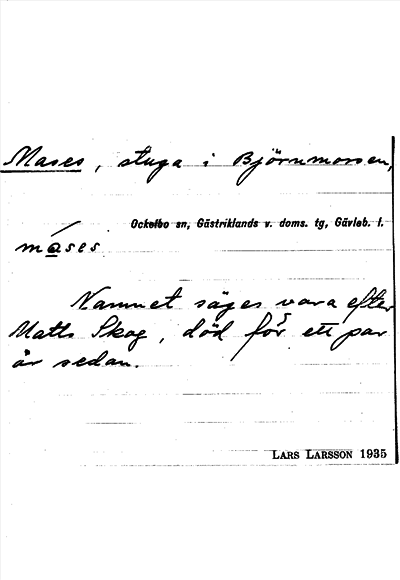 Mases, stuga i Björnmossen,
Ockelbo sn, Gästriklands v. doms. tg, Gävleb. l.
máses
Namnet säges vara efter
Matts Skog, död för ett par
år sedan.
LARS LARSSON 1935